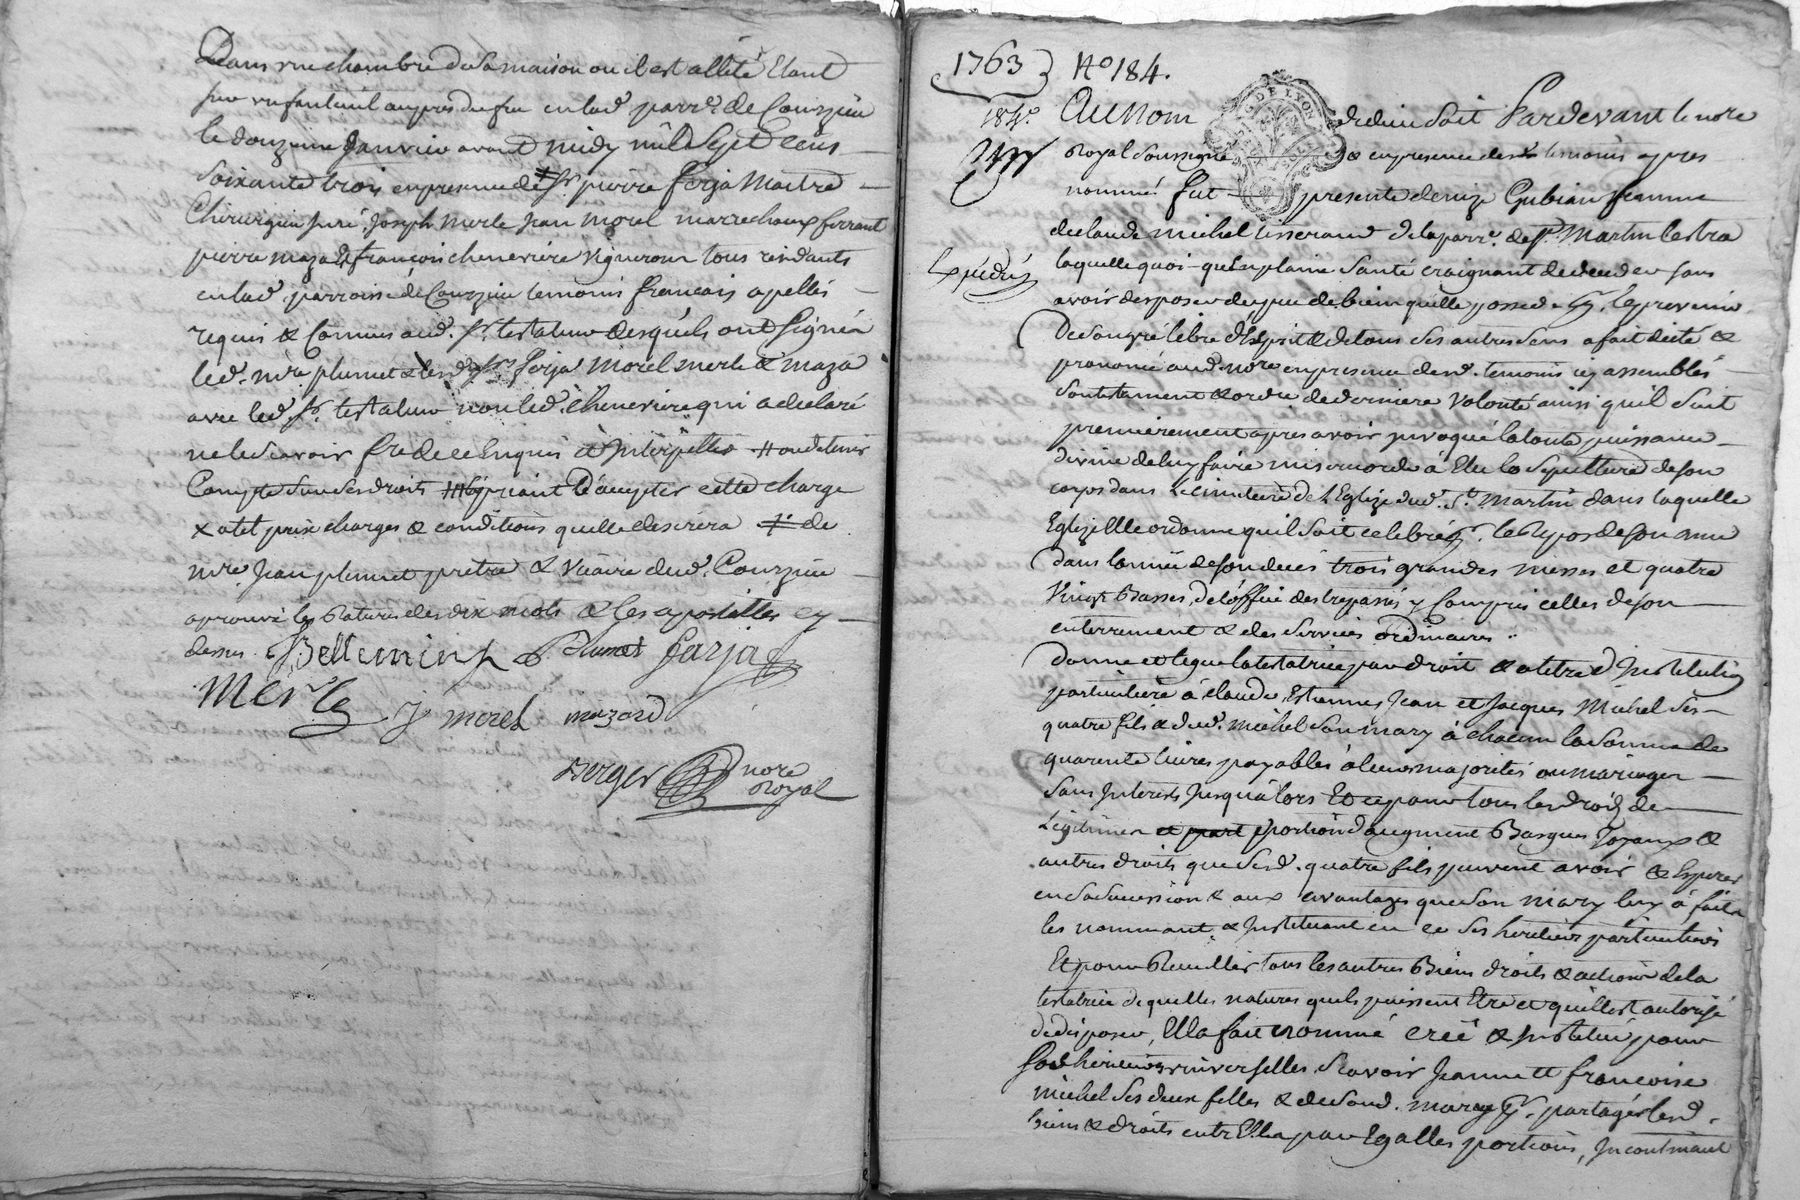 Dans une chambre de sa maison ou il est allité Etant
sur un fauteuil aupres du feu en lad parr.e de Courzieu
le douzieme Janvier avant midy mil Sept cens
soixante trois en presence de # Sr pierre ferja Maitre
Chirurgien juré, Joseph merle Jean morel marrechaux ferrant
pierre mazard & francois cheneviere vigneron tous residants
en lad. parroisse de Courzieu temoins francais apellés
requis & Connus aud. Sr. testateur desquels ont Signés
led. mre plumet & lesd. Srs ferja Morel merle & maza
avec led. Sr. testateur non led. cheneviere qui a declaré
ne le scavoir fre de ce Enquis et Interpellés # ou de tenir
Compte sur ses droits priant d'accepter cette charge
x a tel prix charges & conditions quelle desirera # de
mre Jean plumet pretre & Vicaire dud. Courzieu
aprouvé les Ratures de dix mots & les apostilles cy
dessus. Bellemin Plumet farja
Merle J morel mazard
Berger nore
Royal
1763 No 184.
184e. Au Nom de dieu soit Pardevant le nore
Royal Soussigné & en presence des temoins apres
nommés fut presente denize Gubian femme
de claude michel tisserand de la parr.e de St. Martin lestra
Expédié
laquelle quoi-qu'en plaine Santé craignant de deceder sans
avoir disposer du peu de bien quelle possede pr. le prevenir
De son gré libre d'Esprit & de tous ses autres sens a fait dicté &
prononcé aud. nore en presence desd. temoins icy assemblés
son testament & ordre de derniere Volonté ainsi quil suit
premierement apres avoir invoqué la toute puissance
divine de luy faire misericorde à Elu la Sepulture de son
corps dans le cimetiere de l'Eglize dud. St. Martin dans laquelle
Eglize Elle ordonne quil soit celebré pr. le Repos de son ame
dans lannée de son deces trois grandes messes et quatre
Vingt Basses, de l'office des trepassés y Compris celles de son
enterrement & des services ordinaires.
Donne et legue la testatrice par droit & a titre d'Institution
particuliere à claude, Estienne, Jean et Jacques Michel Ses
quatre fils & dud. michel son mary à chacun la somme de
quarente livres payables à leurs majorités ou mariages
sans Interets Jusqu'alors Et ce pour tous les droits de
Legitimes et part portion d'augment Bagues Joyaux &
autres droits que sesd. quatre fils peuvent avoir & Esperer
en sa succession & aux avantages que son mary luy à faits
les nommant & Instituant en ce ses heritiers particuliers
Et pour Recuillir tous les autres Biens droits & actions de la
testatrice de quelles natures quels puissent Etre et quill est autorisé
de disposer, Ella fait nommé creé & Institué pour
ses heritieres universelles scavoir Jeanne et francoise
michel ses deux filles & de sond. mary pr. partagés lesd.
biens & droits entr'Elles par Egalles portions, Incontinant